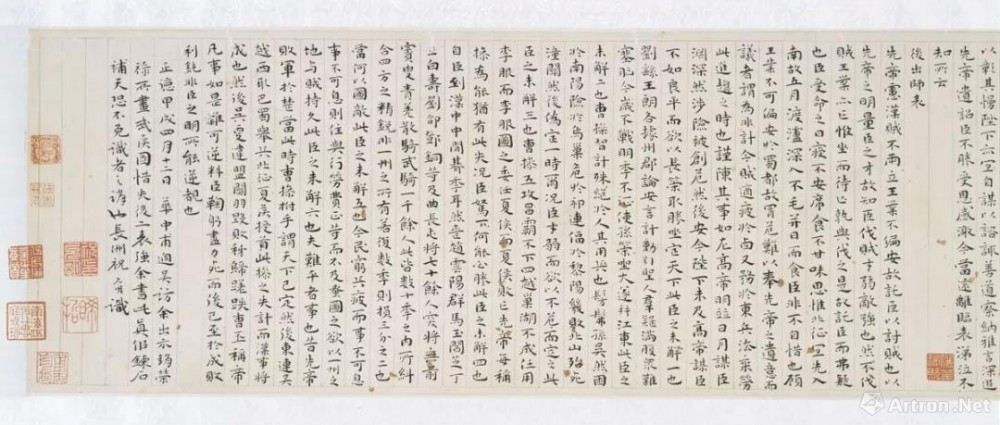 彰其慢陛下亦宜自謀以諮諏善道察納雅言深追
先帝遺詔臣不勝受恩感激今當遠離臨表涕泣不
知所云
後出師表
先帝慮漢賊不兩立王業不偏安故託臣以討賊也以
先帝之明量臣之才故知臣伐賊才弱敵強也然不伐
賊王業亦亡惟坐而待亡孰與伐之是故託臣而弗疑
也臣受命之日寢不安席食不甘味思惟北征宜先入
南故五月渡瀘深入不毛并日而食臣非不自惜也顧
王業不可偏安於蜀都故冒危難以奉先帝之遺意而
議者謂為非計今賊適疲於西又務於東兵法乘勞
此進趨之時也謹陳其事如左高帝明並日月謀臣
淵深然涉險被創危然後安今陛下未及高帝謀臣
不如良平而欲以長策取勝坐定天下此臣之未解一也
劉繇王朗各據州郡論安言計動引聖人羣疑滿腹眾難
塞胸今歲不戰明年不征使孫策坐大遂并江東此臣之
未解二也曹操智計殊絕於人其用兵也髣髴孫吳然困
於南陽險於烏巢危於祁連偪於黎陽幾敗北山殆死
潼關然後偽定一時爾況臣才弱而欲以不危而定之此
臣之未解三也曹操五攻昌霸不下四越巢湖不成任用
李服而李服圖之委任夏侯而夏侯敗亡先帝每稱
操為能猶有此失況臣駑下何能必勝此臣之未解四也
自臣到漢中中間朞年耳然喪趙雲陽群馬玉閻芝丁
立白壽劉郃鄧銅等及曲長屯將七十餘人突將無前
賨叟青羌散騎武騎一千餘人此皆數十年之內所糾
合四方之精銳非一州之所有若復數年則損三分之二也
當何以圖敵此臣之未解五也今民窮兵疲而事不可息
事不可息則住與行勞費正等而不及蚤圖之欲以一州之
地與賊持久此臣之未解六也夫難平者事也昔先帝
敗軍於楚當此時曹操拊手謂天下已定然後東連吳
越西取巴蜀舉兵北征夏侯授首此操之失計而漢事將
成也然後吳更違盟關羽毀敗秭歸蹉跌曹丕稱帝
凡事如是難可逆料臣鞠躬盡力死而後已至於成敗
利鈍非臣之明所能逆覩也
正德甲戌四月十三日華中甫過吳訪余出示趙榮
祿所畫武侯圖惜失後二表強余書此真作鍊石
補天恐不免識者之誚也長洲祝允明識
Artron.Net